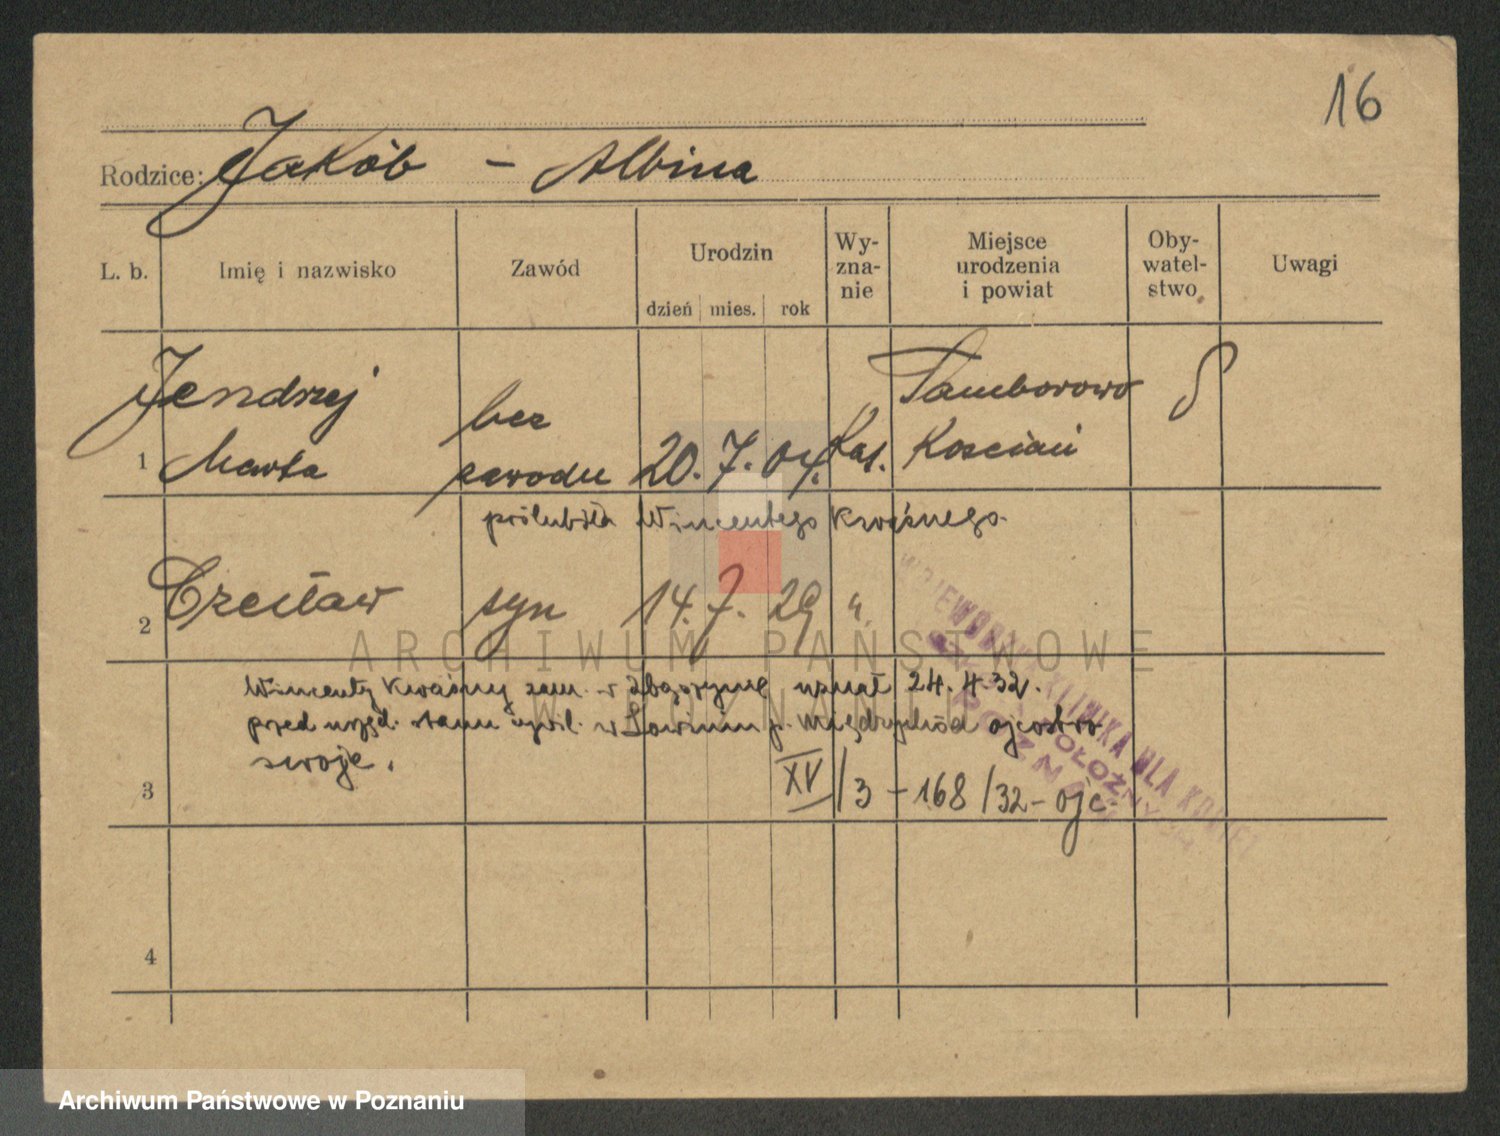 16
Rodzice: Jakób – Albina
L. b. Imię i nazwisko Zawód Urodzin dzień mies. rok Wy-zna-nie Miejsce urodzenia i powiat Oby-watel-stwo Uwagi
Jendrzej Tamborowo
bez
1 Marta zawodu 20. 7. 04. kat. Kościan
pślubiła Wincentego Kwaśnego.
2 Czesław syn 14. 7. 29 "
Wincenty Kwaśny zam. w uznał 24.4.32.
przed urzęd. stanu cywil. w Łowiniu p. Międzychód ojcostwo
swoje.
3 XV/3 – 168/32 – ojc.
4
WOJEWÓDZKA KLINIKA DLA KOBIET
POŁOŻNYCH
POZNAŃ
ARCHIWUM PAŃSTWOWE
W POZNANIU
Archiwum Państwowe w Poznaniu